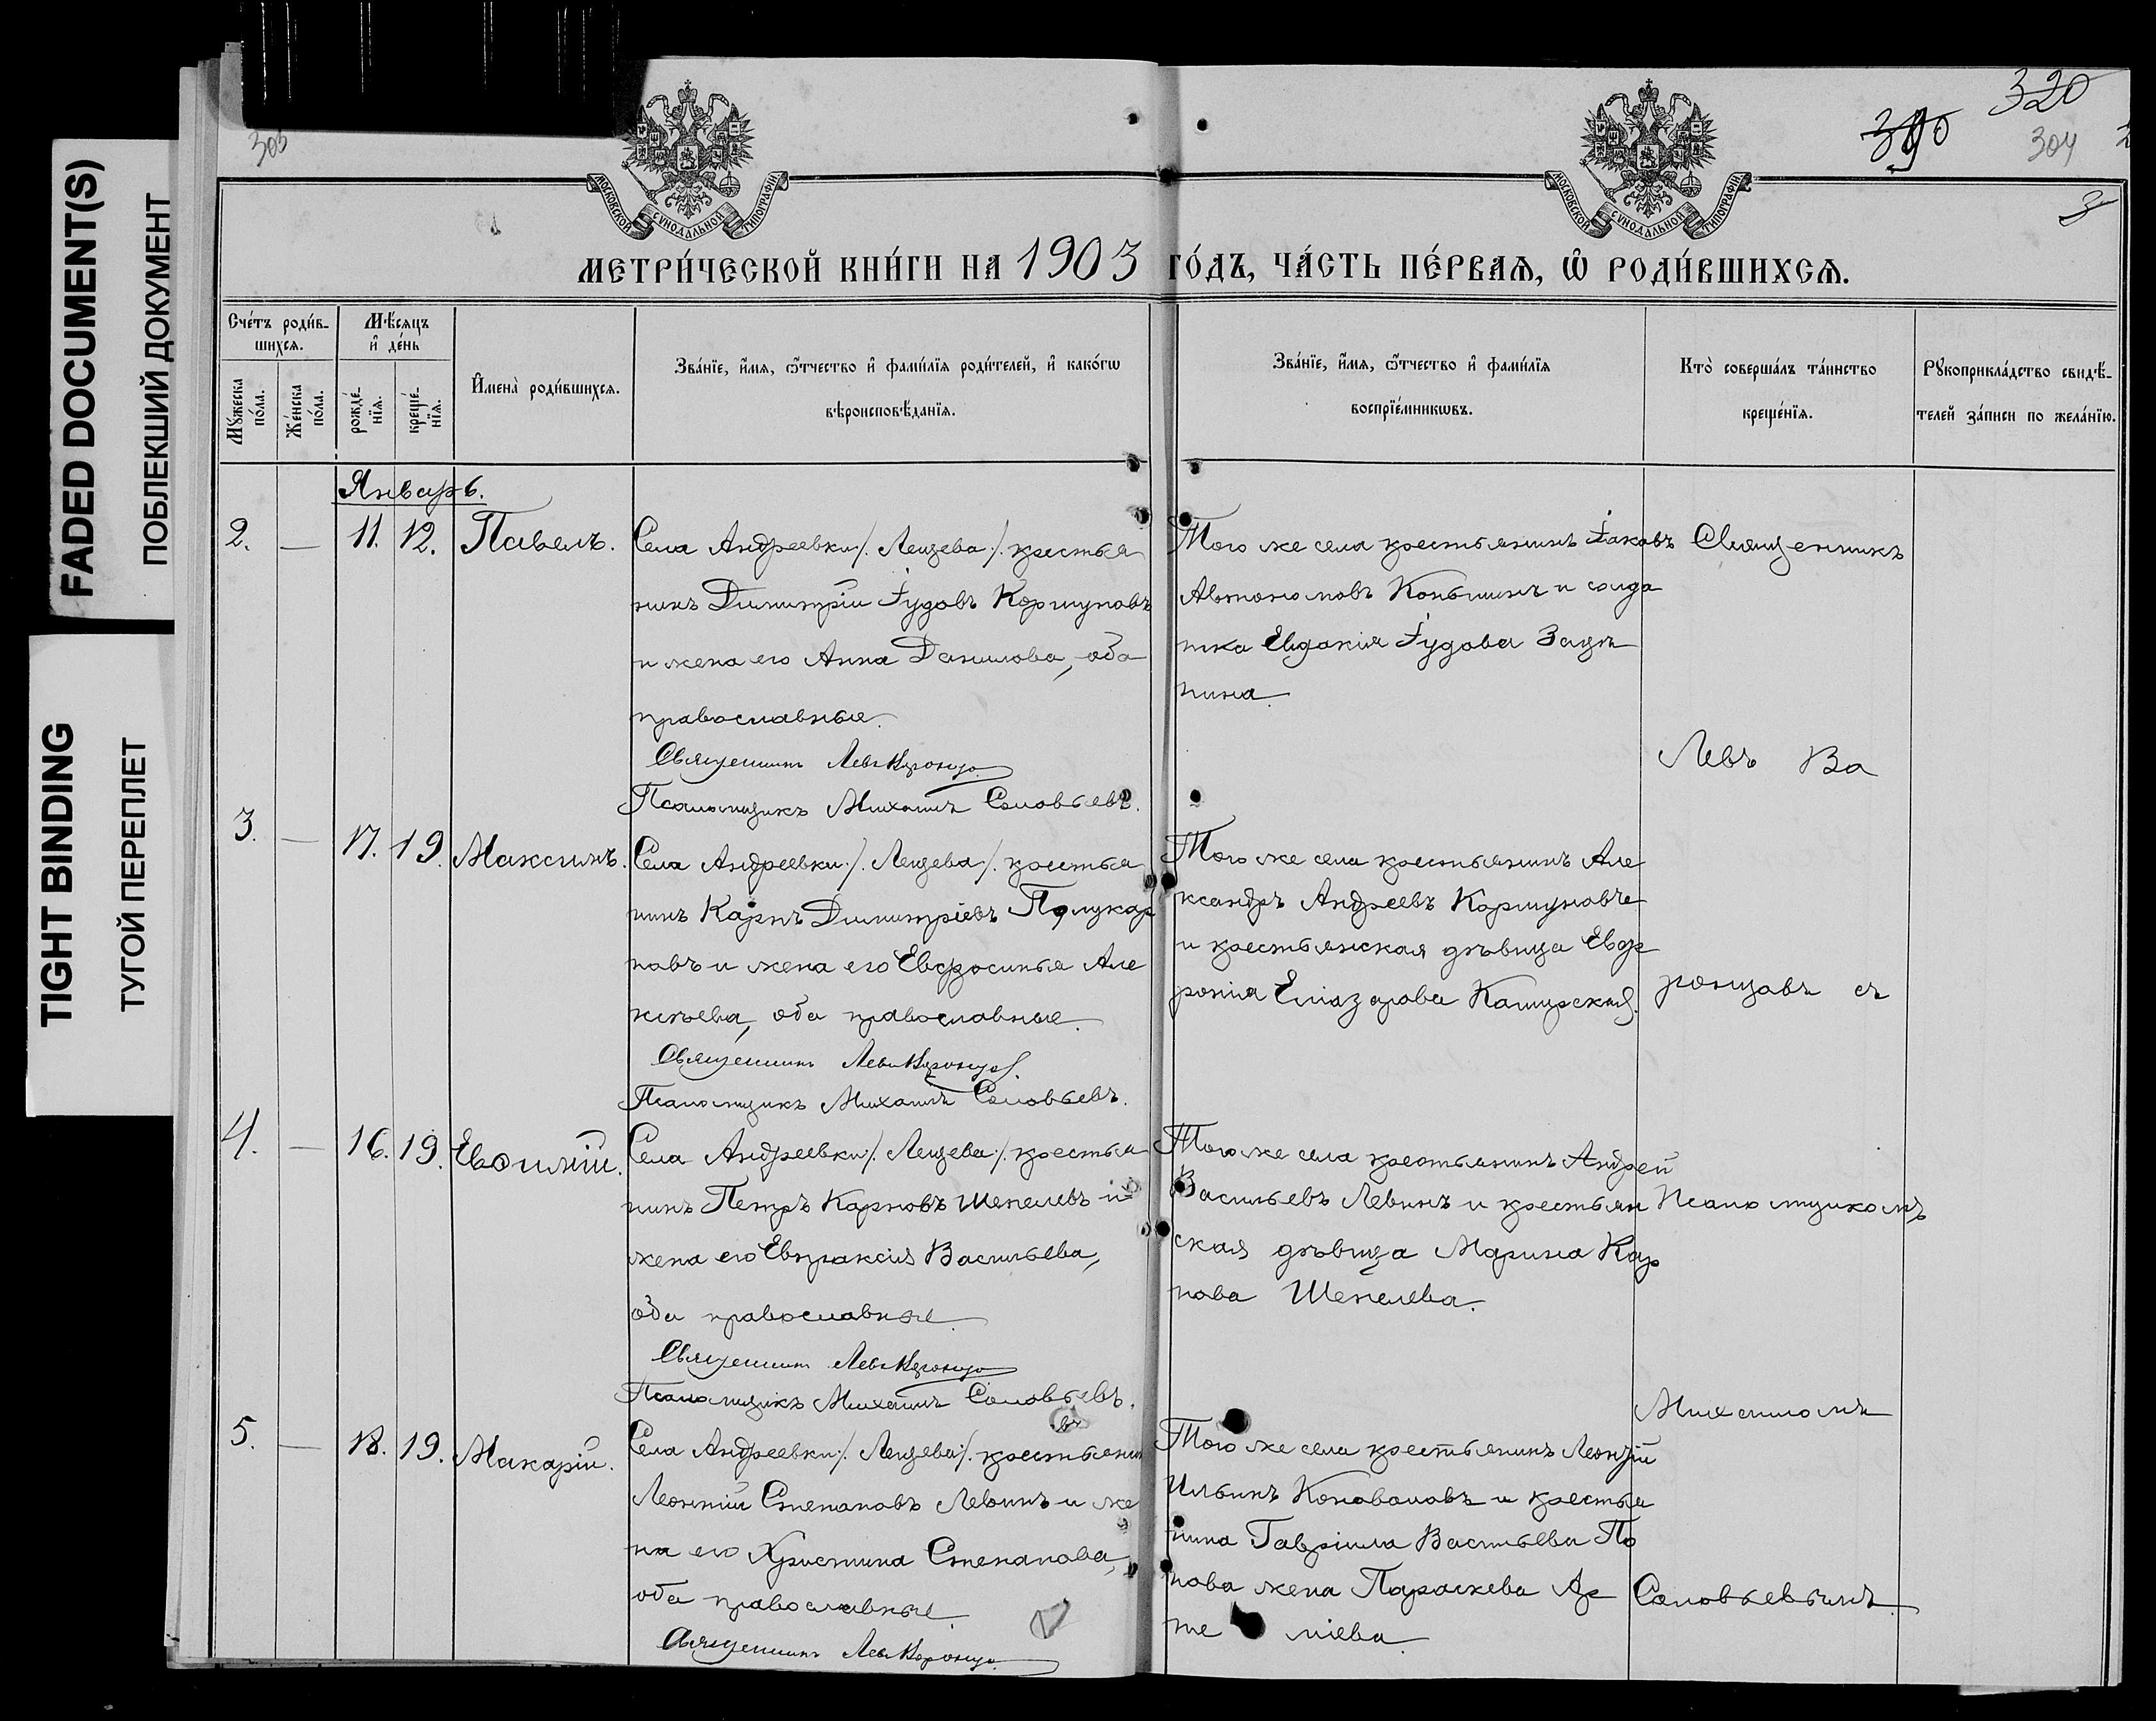 FADED DOCUMENT(S)
ПОБЛЕКШИЙ ДОКУМЕНТ
TIGHT BINDING
ТУГОЙ ПЕРЕПЛЕТ
303
390
320
304
3
МОСКОВСКОЙ СѴНОДАЛЬНОЙ ТИПОГРАФІИ
МОСКОВСКОЙ СѴНОДАЛЬНОЙ ТИПОГРАФІИ
МЕТРИ́ЧЕСКОЙ КНИ́ГИ НА 1903 ГО́ДЪ, ЧА́СТЬ ПЕ́РВАѦ, Ѡ РОДИ́ВШИХСѦ.
Сче́тъ роди́в-
шихсѧ.
Мꙋжеска
по́ла.
Же́нска
по́ла.
Мѣ́сѧцъ
и҆ де́нь
рожде́-
нїѧ.
креще́-
нїѧ.
И҆мена̀ роди́вшихсѧ.
Зва́нїе, и҆́мѧ, ѻ҆́тчество и҆ фами́лїѧ роди́телей, и҆ како́гѡ
вѣроисповѣ́данїѧ.
Зва́нїе, и҆́мѧ, ѻ҆́тчество и҆ фами́лїѧ
воспрїе́мникѡвъ.
Кто̀ соверша́лъ та́инство
креще́нїѧ.
Рꙋкоприкла́дство свидѣ́-
телей за́писи по жела́нїю.
Январь.
2. — 11. 12. Павелъ.
Села Андреевки /. Лещева ./. крестья
нинъ Димитрій Іудовъ Коршуновъ
и жена его Анна Данилова, оба
православные.
Священникъ Левъ Воронцо
Псаломщикъ Михаилъ Соловьевъ.
Того же села крестьянинъ Іаковъ
Автономовъ Коньшинъ и солда
тка Евдокія Іудова Зацѣ
пина.
Священникъ
Левъ Во
3. — 17. 19. Максимъ.
Села Андреевки /. Лещева ./. крестья
нинъ Карпъ Димитріевъ Поликар
повъ и жена его Евфросинья Але
ксѣева, оба православные.
Священникъ Левъ Воронцо
Псаломщикъ Михаилъ Соловьевъ.
Того же села крестьянинъ Але
ксандръ Андреевъ Коршуновъ
и крестьянская дѣвица Евф
ронія Еліазарова Каширская.
ронцовъ съ
4. — 16. 19. Евѳимій.
Села Андреевки /. Лещева ./. крестья
нинъ Петръ Карповъ Шепелевъ и
жена его Евпраксія Васильева,
оба православные.
Священникъ Левъ Воронцо
Псаломщикъ Михаилъ Соловьевъ.
Того же села крестьянинъ Андрей
Васильевъ Левинъ и крестьян
ская дѣвица Марина Кар
пова Шепелева.
Псаломщикомъ
Михаиломъ
5. — 18. 19. Макарій.
Села Андреевки /. Лещева ./. крестьянин
Леонтій Степановъ Левинъ и же
на его Христина Степанова,
оба православные.
Священникъ Левъ Воронцо
Того же села крестьянинъ Леонтій
Ильинъ Коноваловъ и крестья
нина Гавріила Васильева По
пова жена Параскева Ар
те міева.
Соловьевымъ.